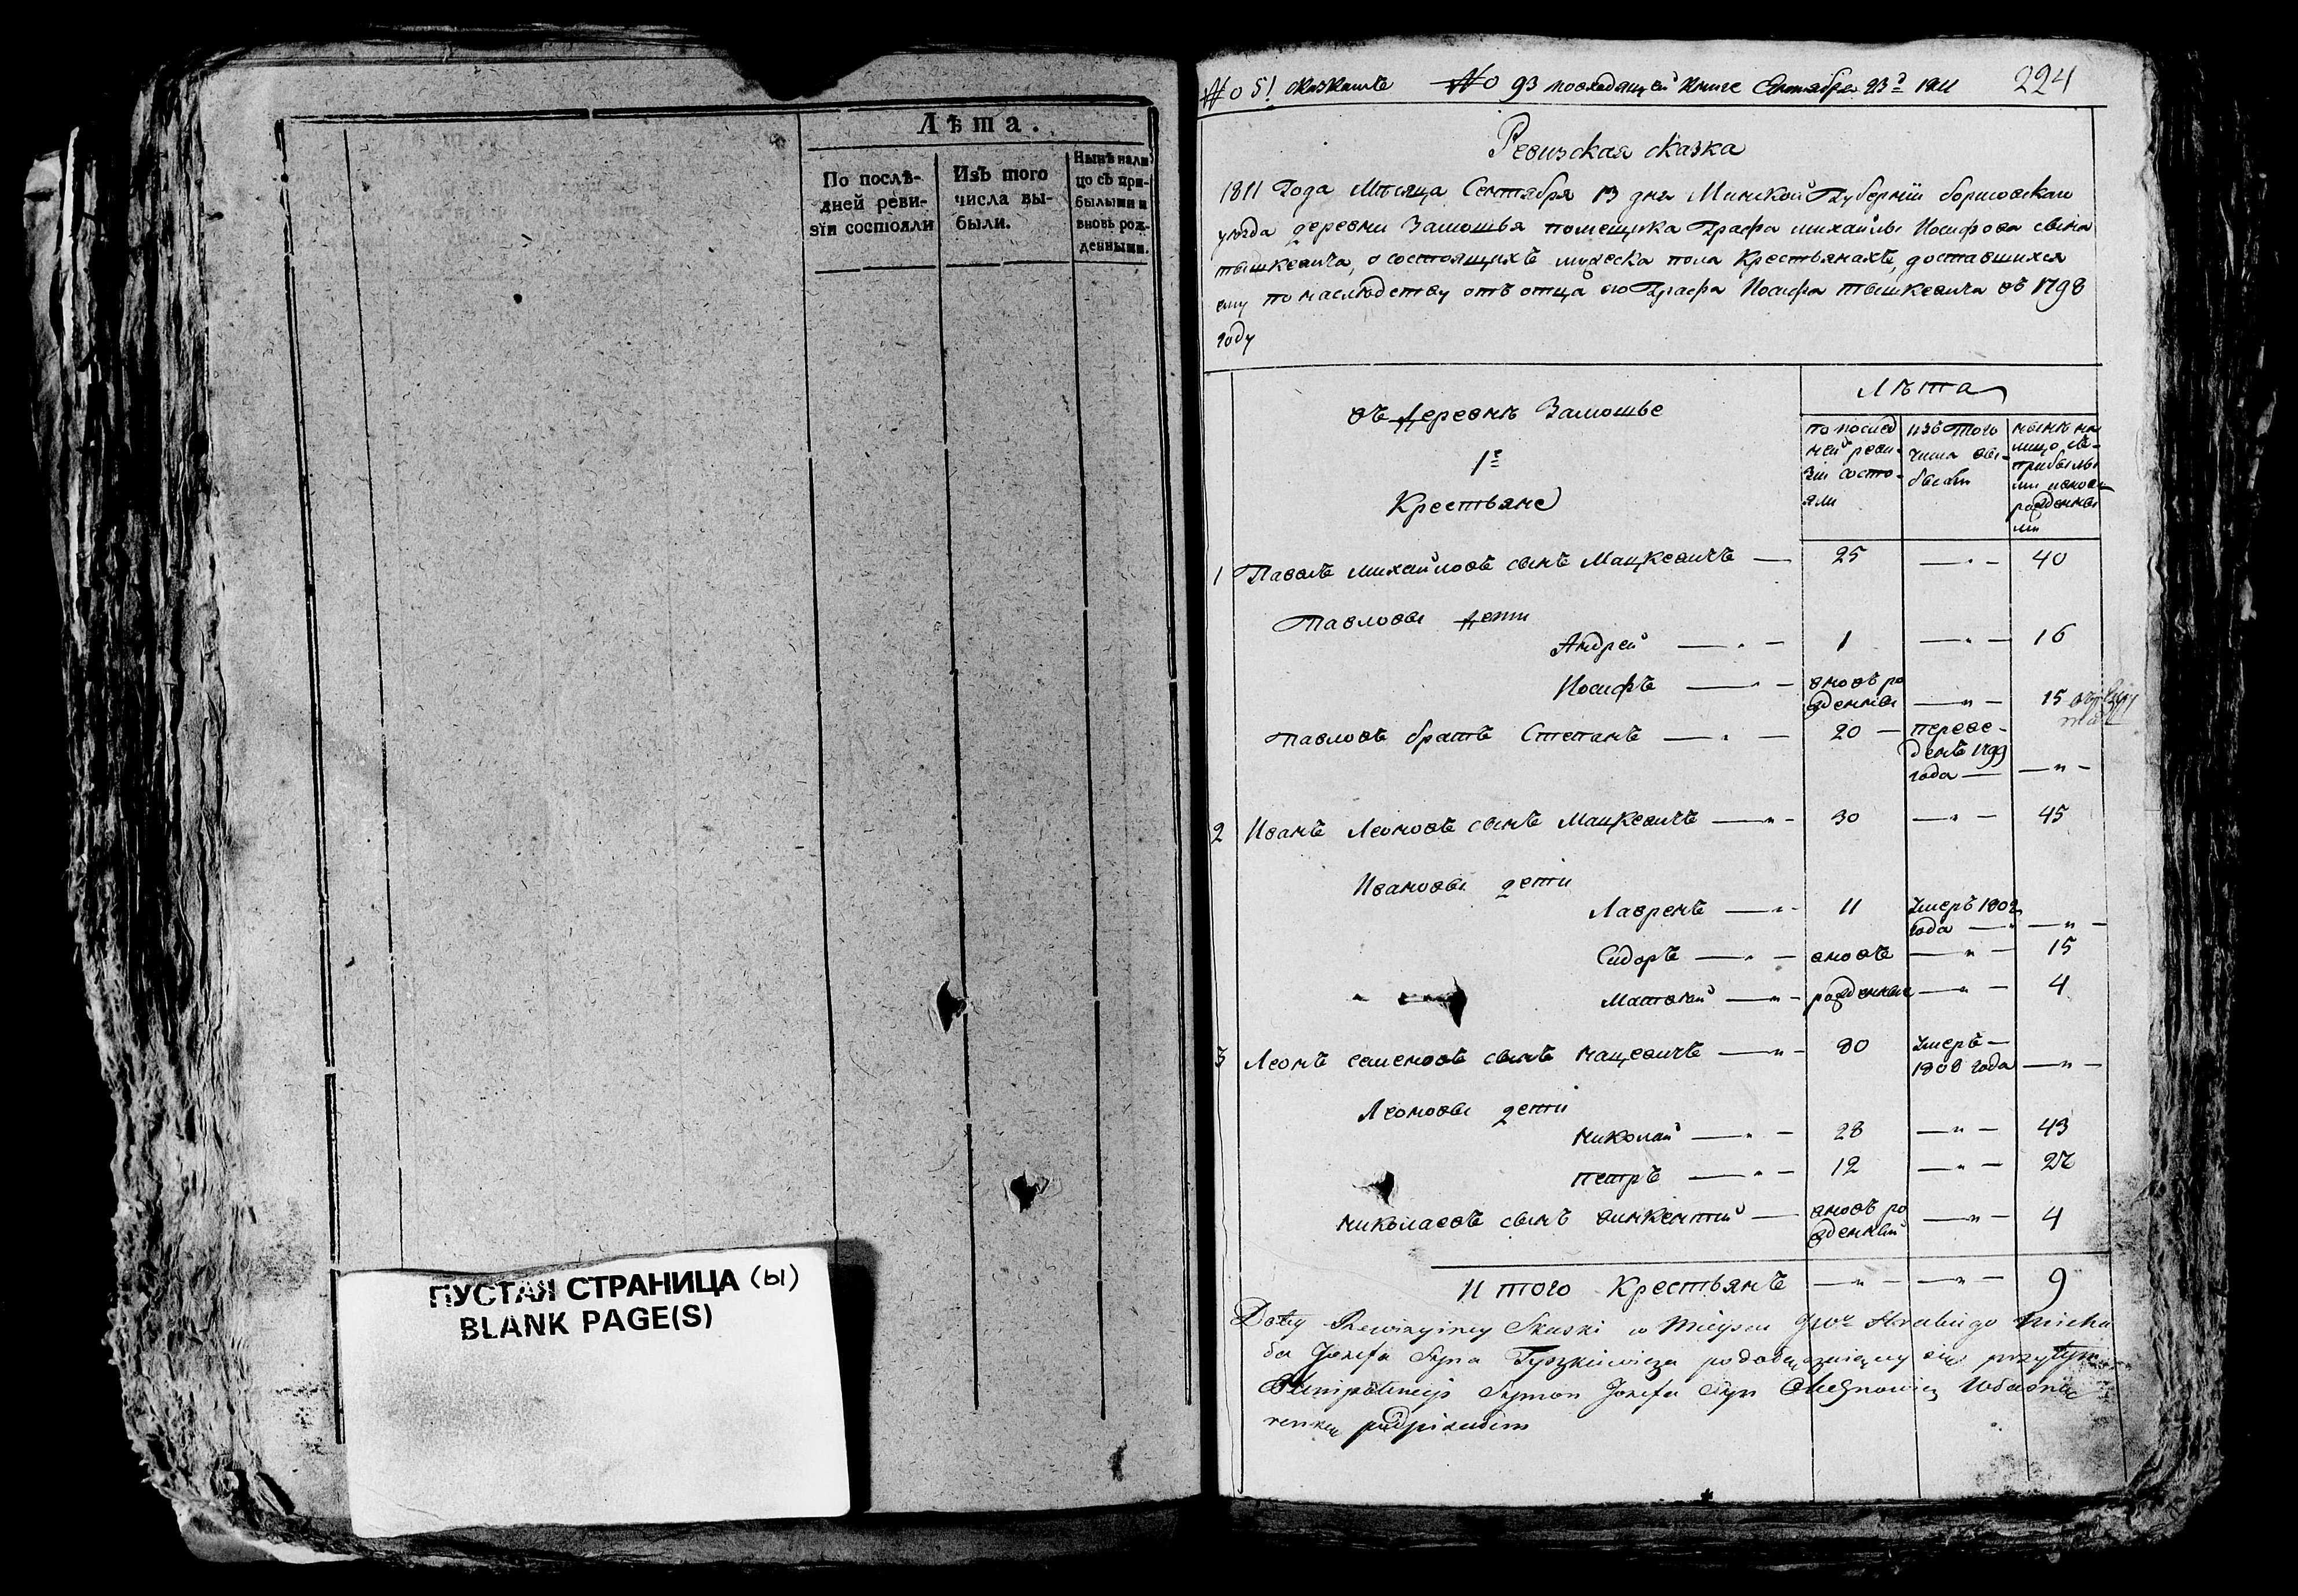 Лѣта.
По послѣ-
дней реви-
зіи состояли
Изъ того
числа вы-
были.
Нынѣ нали
цо съ при-
былыми и
вновь рож-
денными.
ПУСТАЯ СТРАНИЦА (ы)
BLANK PAGE(S)
№ 51 № 93 по входящей книге Сентября 23 1811 224
Ревизская сказка
1811 Года Мѣсяца Сентября 13 дня Минской Губерніи борисовскаго
уѣзда деревни Замошья помещика Графа михайлы Иосифова сына
тышкевича, о состоящихъ мужеска пола Крестьянахъ, доставшихся
ему по наслѣдству отъ отца его Графа Иосифа тышкевича въ 1798
году
Лѣта
въ Деревнѣ Замошье
по послед
ней реви-
зіи состо-
яли
изъ того
числа вы-
были
нынѣ на
лицо съ-
прибылы
ми и вновь
рожденны
ми
1е
Крестьяне
1 Павелъ михайловъ сынъ Мацкевичъ 25 40
Павловы Дети
Андрей 1 16
Иосифъ вновь ро
жденны 15
Павловъ братъ Степанъ 20 переве-
денъ 1799
года
2 Иванъ Леоновъ сынъ Мацкевичъ 30 45
Ивановы дети
Лавренъ 11 Умеръ 1802
года
Сидоръ вновь 15
Матвей рожденные 4
3 Леонъ семеновъ сынъ мацевичъ 80 Умеръ
1808 года
Леоновы дети
николай 28 43
петръ 12 27
николаевъ сынъ винкентий вновь ро
жденный 4
Итого Крестьянъ 9
Do tey Rewizyiney Skaski w Mieyscu Hrabiego Micha
ła Jozefa Syna Tyszkiewicza przytym
Plenipotencyi Szymon Jozefa Syn własną
renką podpisałem